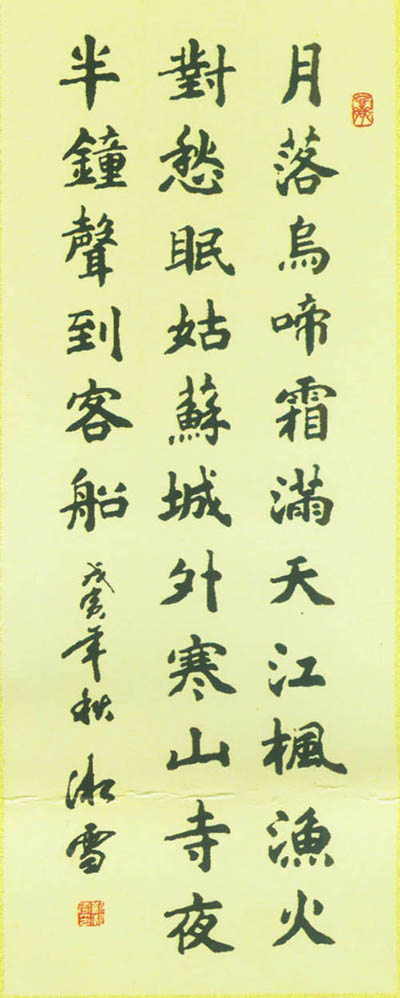 月落烏啼霜滿天江楓漁火
對愁眠姑蘇城外寒山寺夜
半鐘聲到客船
戊寅年秋 湘雪